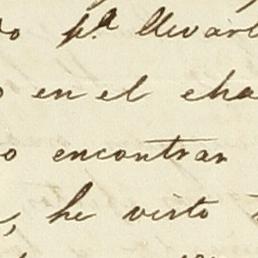 pª llevar
en el cha
encontrar
he visto